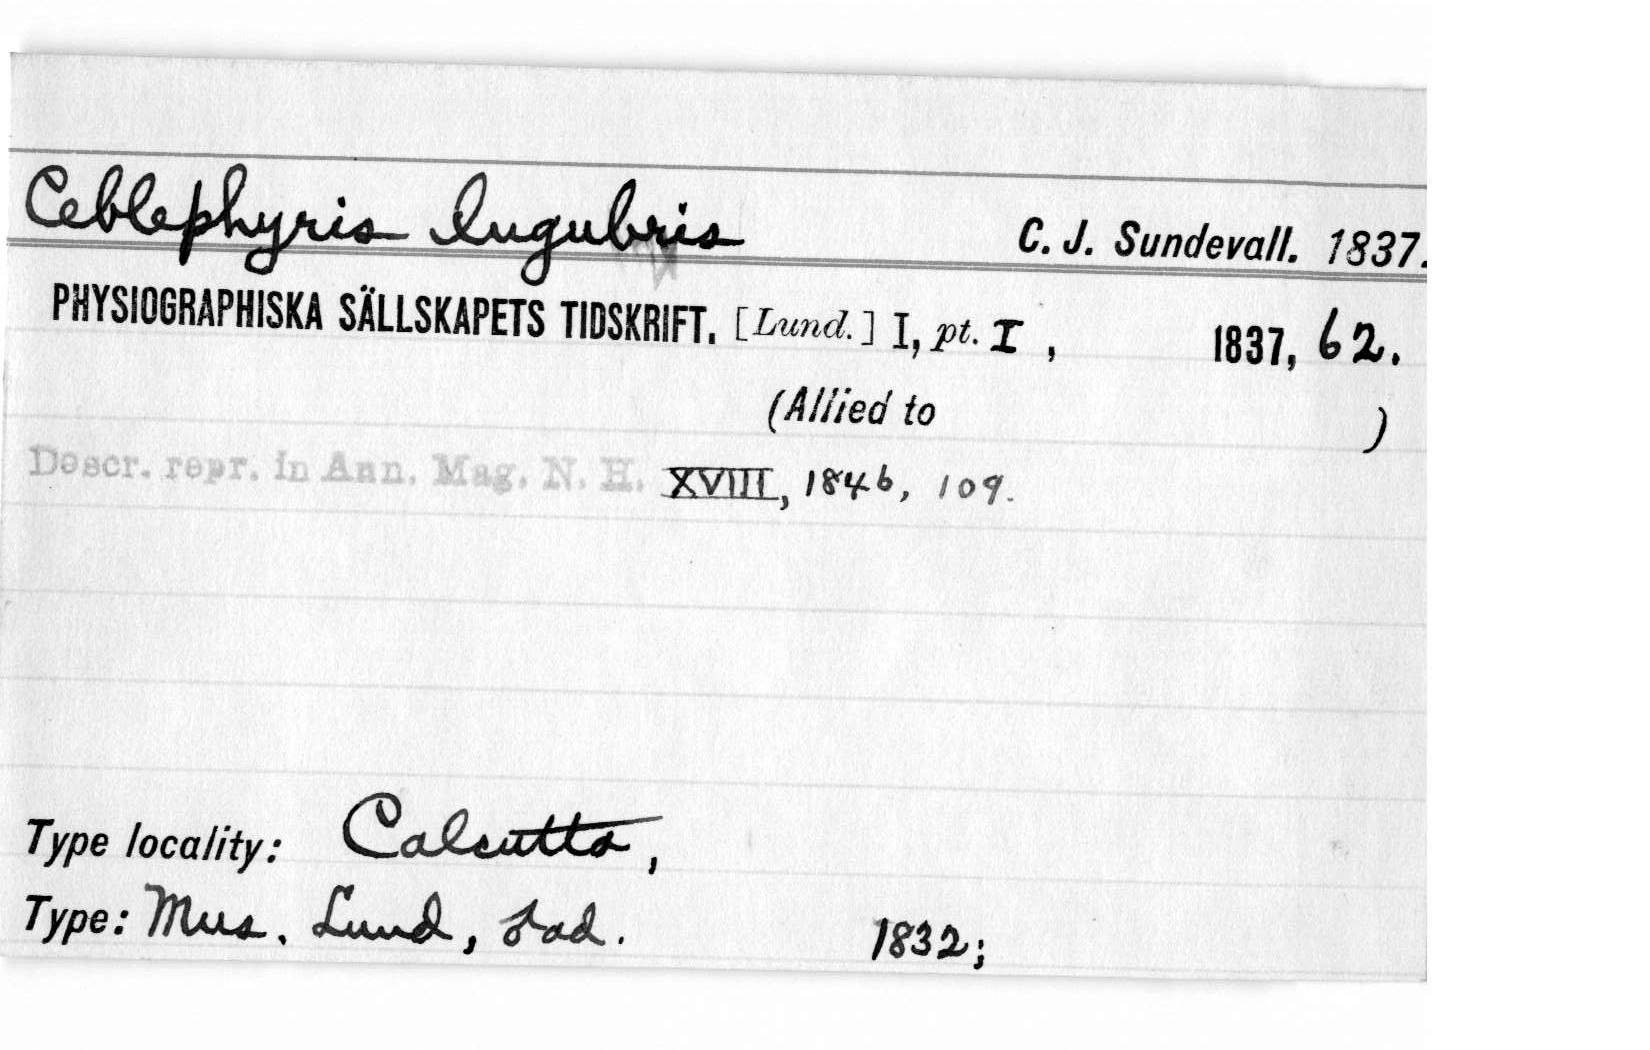 Ceblephyris lugubris C. J. Sundevall. 1837.
PHYSIOGRAPHISKA SÄLLSKAPETS TIDSKRIFT. [Lund.] I, pt. I, 1837, 62.
(Allied to )
Descr. repr. in Ann. Mag. N. H. XVIII, 1846, 109.
Type locality: Calcutta,
Type: Mus. Lund, ♂ad. 1832;